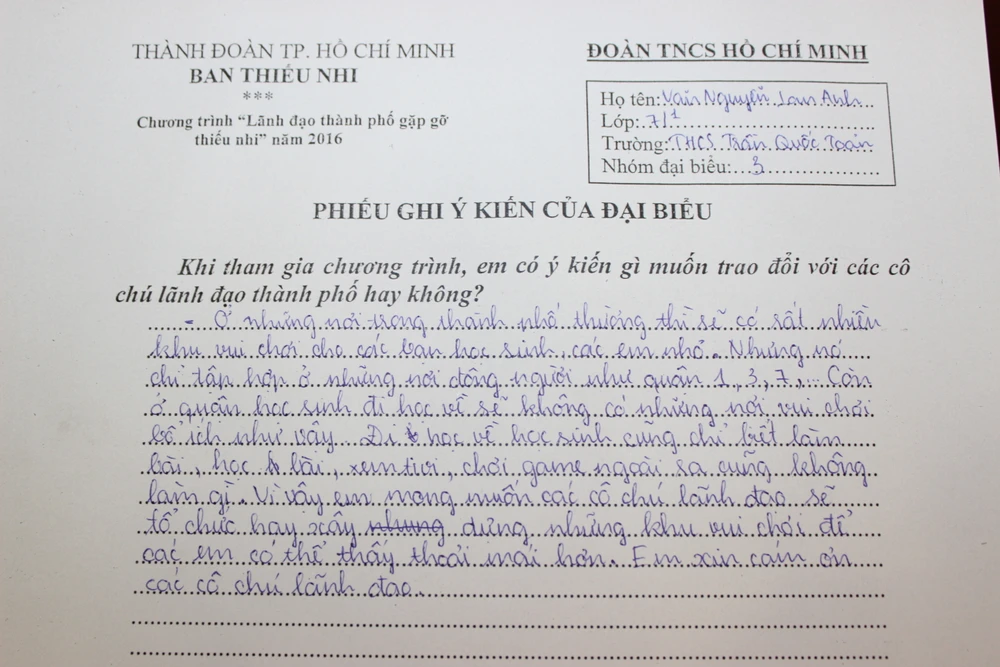 THÀNH ĐOÀN TP. HỒ CHÍ MINH
BAN THIẾU NHI
***
Chương trình "Lãnh đạo thành phố gặp gỡ
thiếu nhi" năm 2016
ĐOÀN TNCS HỒ CHÍ MINH
Họ tên: Văn Nguyễn Lan Anh
Lớp: 7/1
Trường: THCS Trần Quốc Toản
Nhóm đại biểu: 3
PHIẾU GHI Ý KIẾN CỦA ĐẠI BIỂU
Khi tham gia chương trình, em có ý kiến gì muốn trao đổi với các cô
chú lãnh đạo thành phố hay không?
- Ở những nơi trong thành phố thường thì sẽ có rất nhiều
khu vui chơi cho các bạn học sinh, các em nhỏ. Nhưng nó
chỉ tập hợp ở những nơi đông người như quận 1, 3, 7,... Còn
ở quận học sinh đi học về sẽ không có những nơi vui chơi
bổ ích như vậy. Đi học về học sinh cũng chỉ biết làm
bài, học bài, xem tivi, chơi game ngoài ra cũng không
làm gì. Vì vậy em mong muốn các cô chú lãnh đạo sẽ
tổ chức hay xây nhưng dựng những khu vui chơi để
các em có thể thấy thoải mái hơn. Em xin cám ơn
các cô chú lãnh đạo.